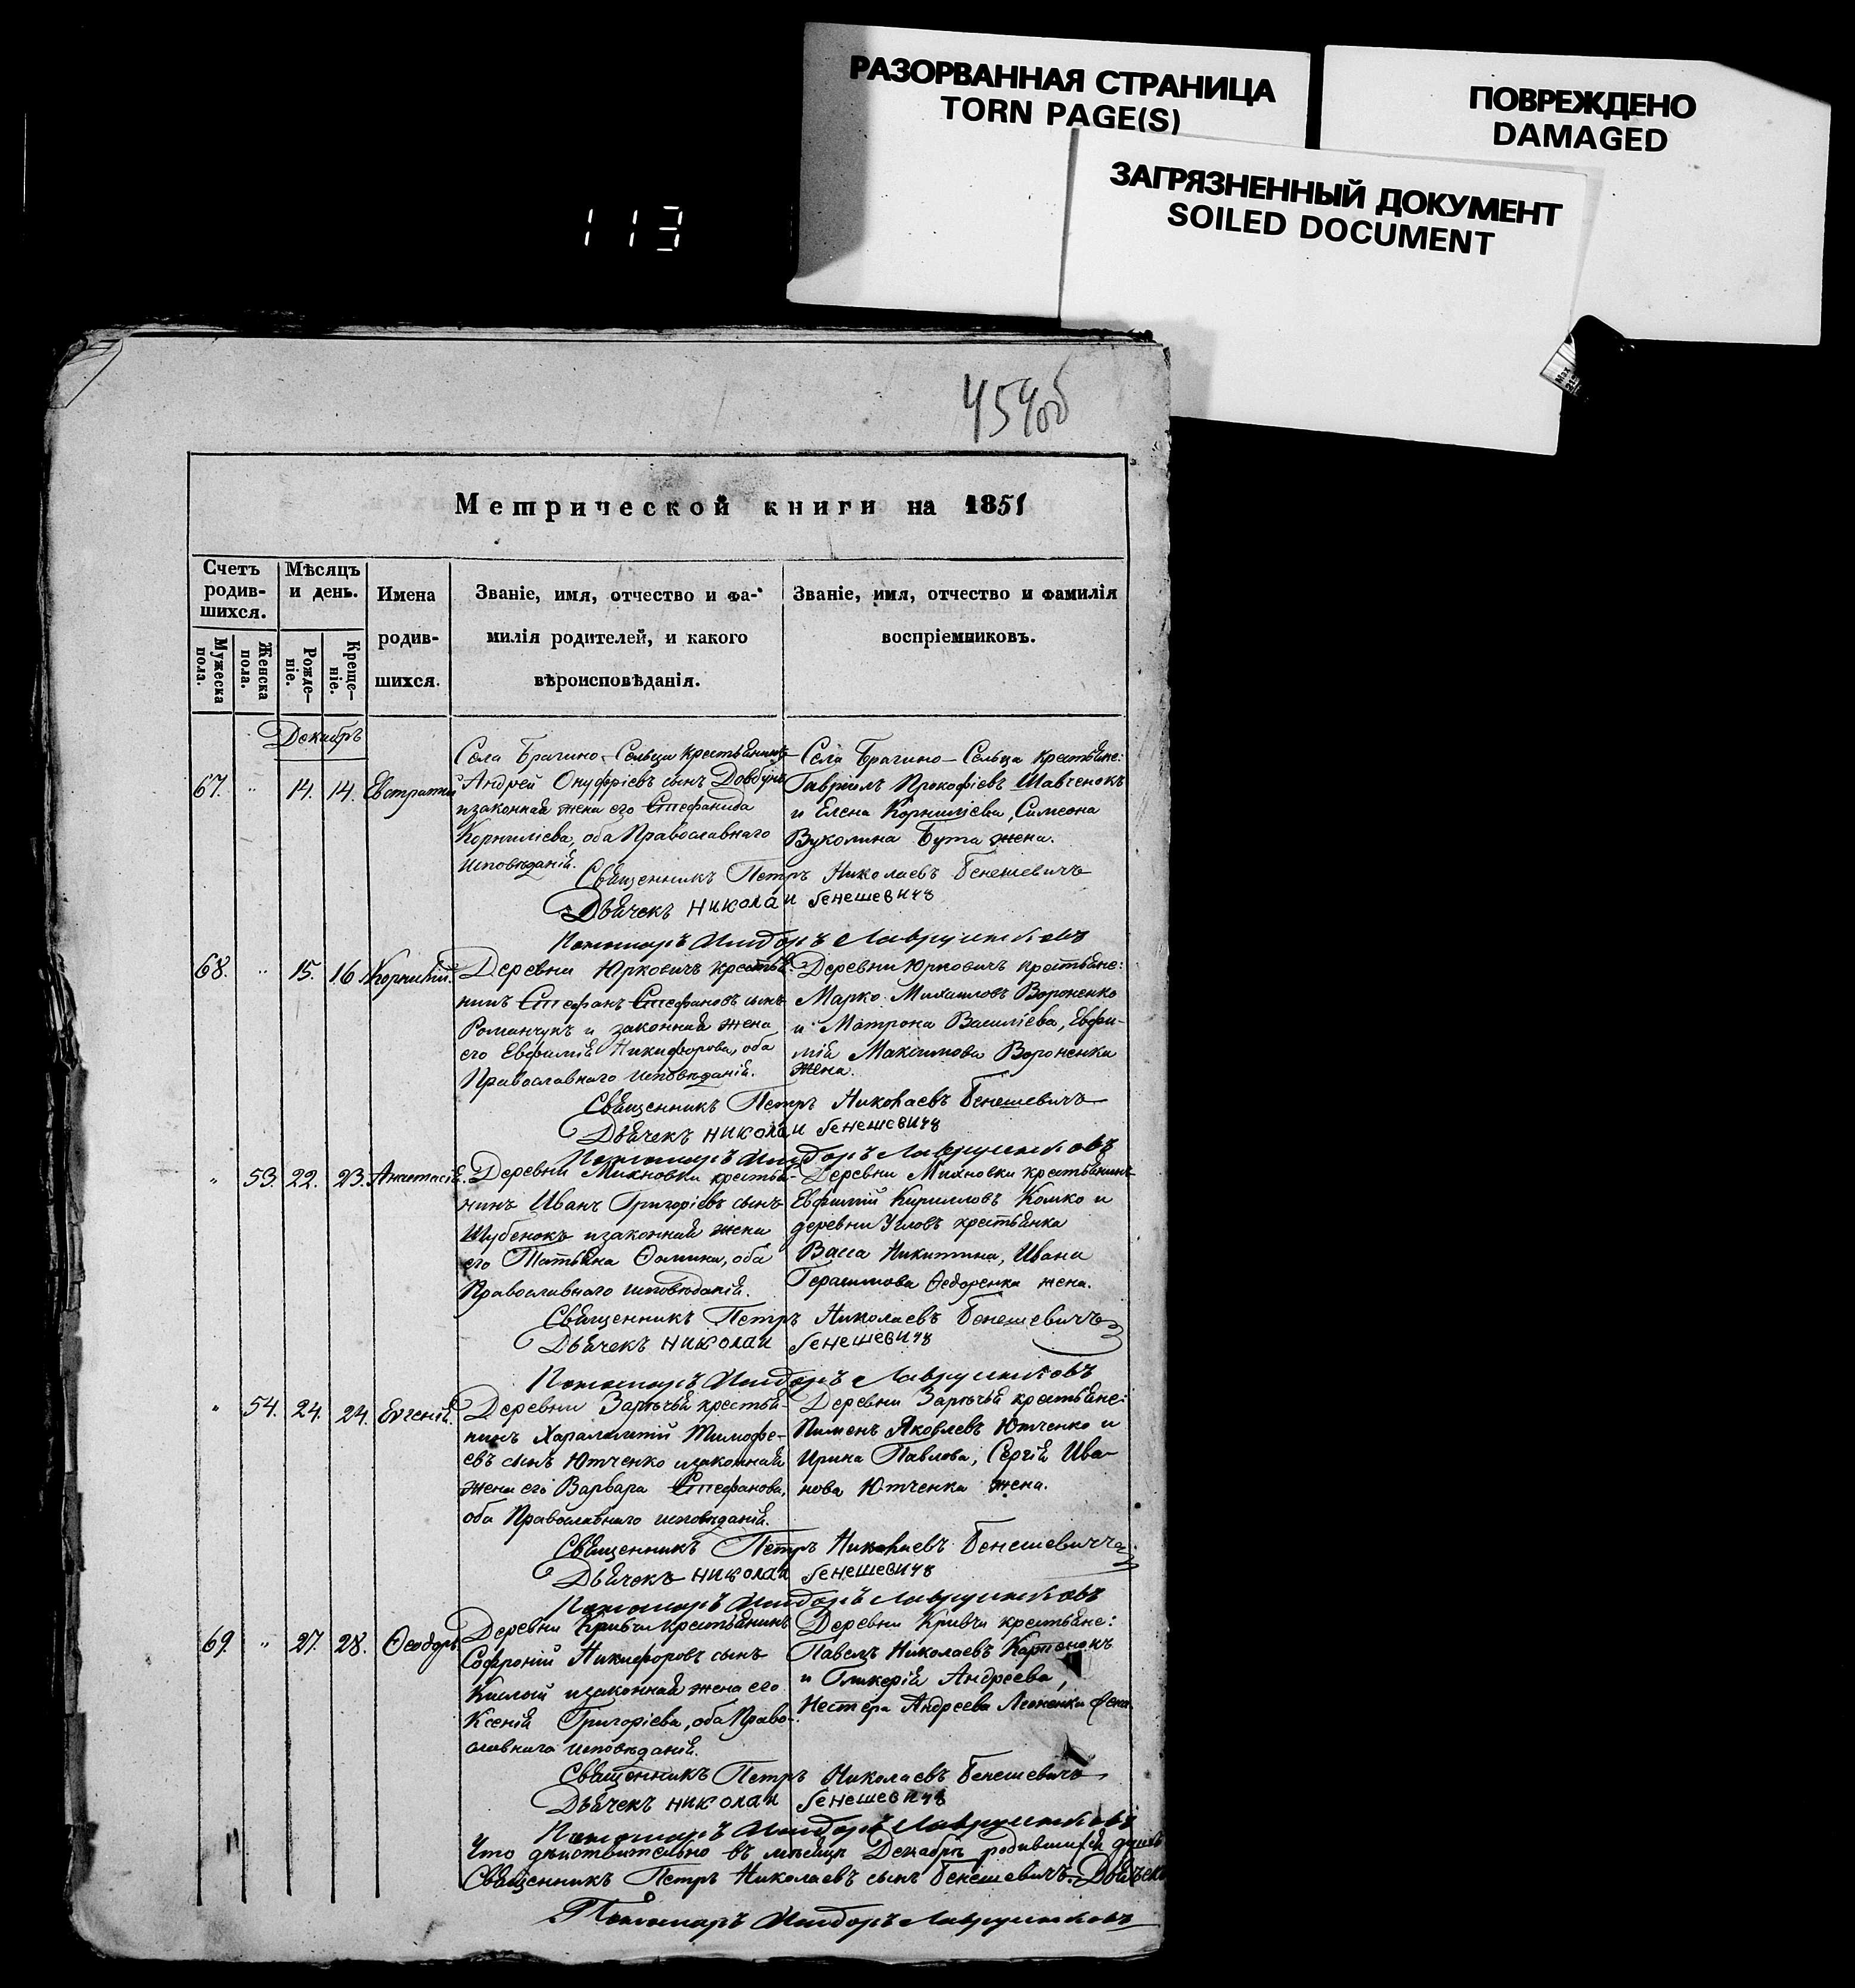 РАЗОРВАННАЯ СТРАНИЦА
TORN PAGE(S)
ПОВРЕЖДЕНО
DAMAGED
ЗАГРЯЗНЕННЫЙ ДОКУМЕНТ
SOILED DOCUMENT
113
454об
Метрической книги на 1851
Счетъ родив-шихся.
Мужеска пола.
Женска пола.
Мѣсяцъ и день.
Рожде-ніе.
Креще-ніе.
Имена
родив-
шихся.
Званіе, имя, отчество и фа-
милія родителей, и какого
вѣроисповѣданія.
Званіе, имя, отчество и фамилія
воспріемниковъ.
Декабрь
67. " 14. 14. Евстратій
Села Брагино-Сельца крестьянинъ
Андрей Онуфріевъ сынъ Довбунъ
и законная жена его Стефанида
Корниліева, оба Православнаго
исповѣданія.
Села Брагино-Сельца крестьяне:
Гавріилъ Прокофіевъ Шавченокъ
и Елена Корниліева, Симеона
Вуколина Бута жена.
Священникъ Петръ Николаевъ Бенешевичъ
Дьячекъ Николаи Бенешевичъ
Пономарь Исидоръ Лаврушенковъ
68. " 15. 16. Корнилій.
Деревни Юрковичъ крестья-
нинъ Стефанъ Стефановъ сынъ
Романчукъ и законная жена
его Евфимія Никифорова, оба
Православнаго исповѣданія.
Деревни Юрковичъ крестьяне:
Марко Михаиловъ Вороненко
и Матрона Василіева, Евфи-
мія Максимова Вороненка
жена.
Священникъ Петръ Николаевъ Бенешевичъ
Дьячекъ Николаи Бенешевичъ
Пономарь Исидоръ Лаврушенковъ
" 53. 22. 23. Анастасія.
Деревни Михновки крестья-
нинъ Иванъ Григоріевъ сынъ
Шубенокъ и законная жена
его Татьяна Ѳомина, оба
Православнаго исповѣданія.
Деревни Михновки крестьянинъ
Евфимій Кирилловъ Комко и
деревни Угловъ крестьянка
Васса Никитина, Ивана
Герасимова Ѳедоренка жена.
Священникъ Петръ Николаевъ Бенешевичъ
Дьячекъ Николаи Бенешевичъ
Пономарь Исидоръ Лаврушенковъ
" 54. 24. 24. Евгенія.
Деревни Зарѣчья крестья-
нинъ Харалампій Тимофе-
евъ сынъ Ютченко и законная
жена его Варвара Стефанова,
оба Православнаго исповѣданія.
Деревни Зарѣчья крестьяне:
Пименъ Яковлевъ Ютченко и
Ирина Павлова, Сергія Ива-
нова Ютченка жена.
Священникъ Петръ Николаевъ Бенешевичъ
Дьячекъ Николаи Бенешевичъ
Пономарь Исидоръ Лаврушенковъ
69. " 27. 28. Ѳеодоръ
Деревни Кривчи крестьянинъ
Софроній Никифоровъ сынъ
Кислый и законная жена его
Ксенія Григоріева, оба Право-
славнаго исповѣданія.
Деревни Кривчи крестьяне:
Павелъ Николаевъ Картенокъ
и Гликерія Андреева,
Нестера Андреева Леоненка жена.
Священникъ Петръ Николаевъ Бенешевичъ
Дьячекъ Николаи Бенешевичъ
Пономарь Исидоръ Лаврушенковъ
Что дѣйствительно въ мѣсяцѣ Декабрѣ родившихся
Священникъ Петръ Николаевъ сынъ Бенешевичъ. Дьячекъ
Пономарь Исидоръ Лаврушенковъ